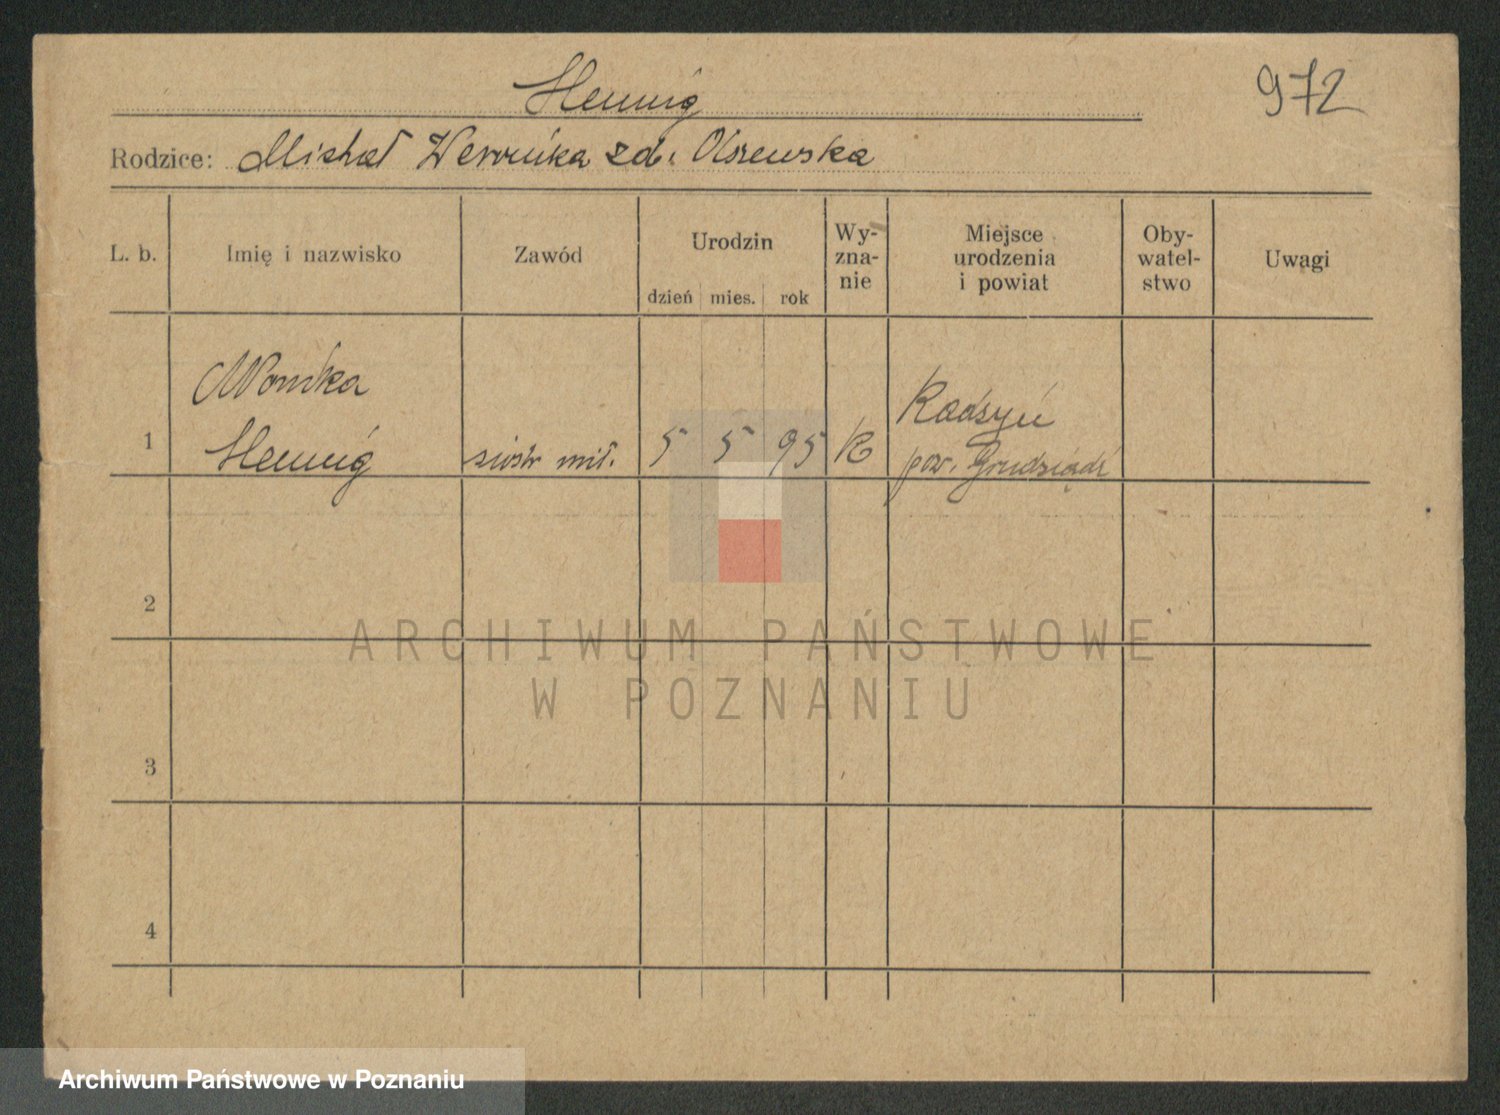 972
Hennig
Rodzice: Michał Weronika zd. Olszewska
L. b.
Imię i nazwisko
Zawód
Urodzin
dzień mies. rok
Wy-
zna-
nie
Miejsce
urodzenia
i powiat
Oby-
watel-
stwo
Uwagi
Monika
1 Hennig siostr mił. 5 5 95 K Radzyń
pow. Grudziądz
2
3
4
ARCHIWUM PAŃSTWOWE
W POZNANIU
Archiwum Państwowe w Poznaniu